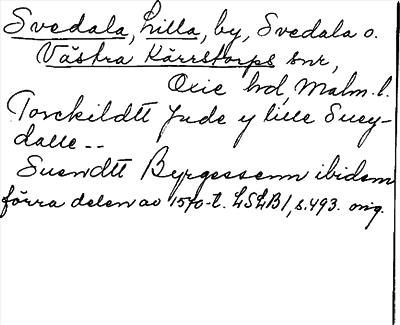 Svedala, Lilla, by, Svedala o.
Västra Kärrstorps snr,
Oxie hd, Malm. l.
Torckildtt Jude y lille Suey-
dalle --
Suendtt Byrgessenn ibidem
förra delen av 1570-t. LSLB1, s. 493. orig.